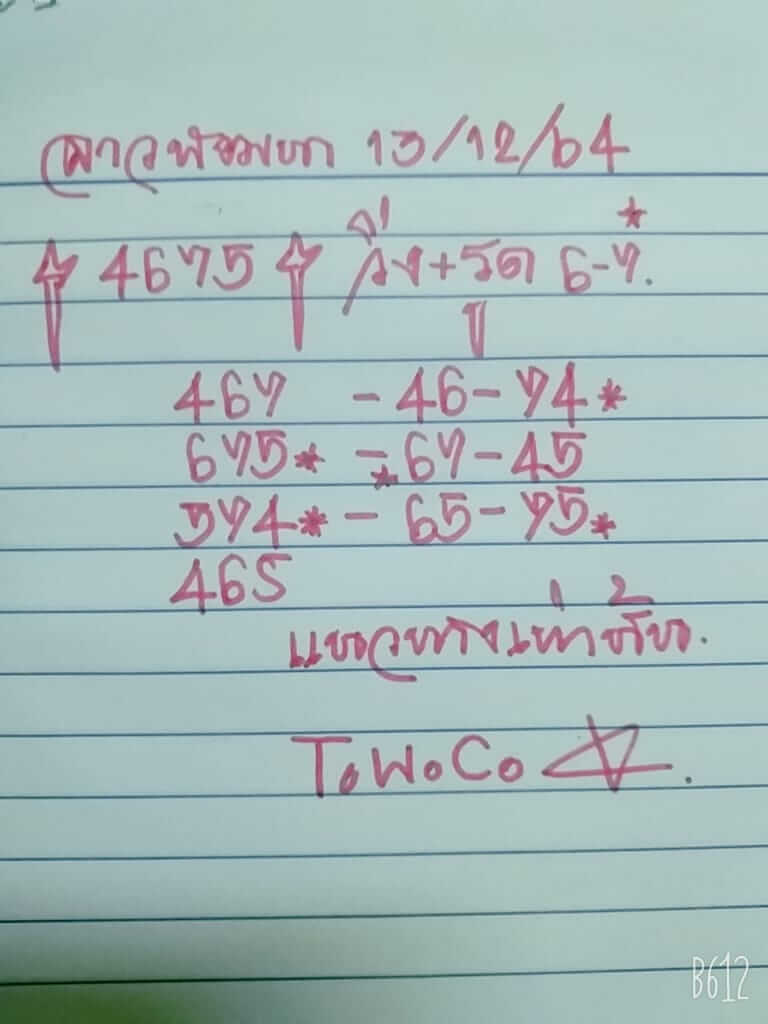 ลาวพัฒนา 13/12/64
4675 วิ่ง+รูด 6-7.
467 - 46 - 74*
675* - *67 - 45
574* - 65 - 75*
465
แนวทางเท่านั้น.
ToWoCo
B612